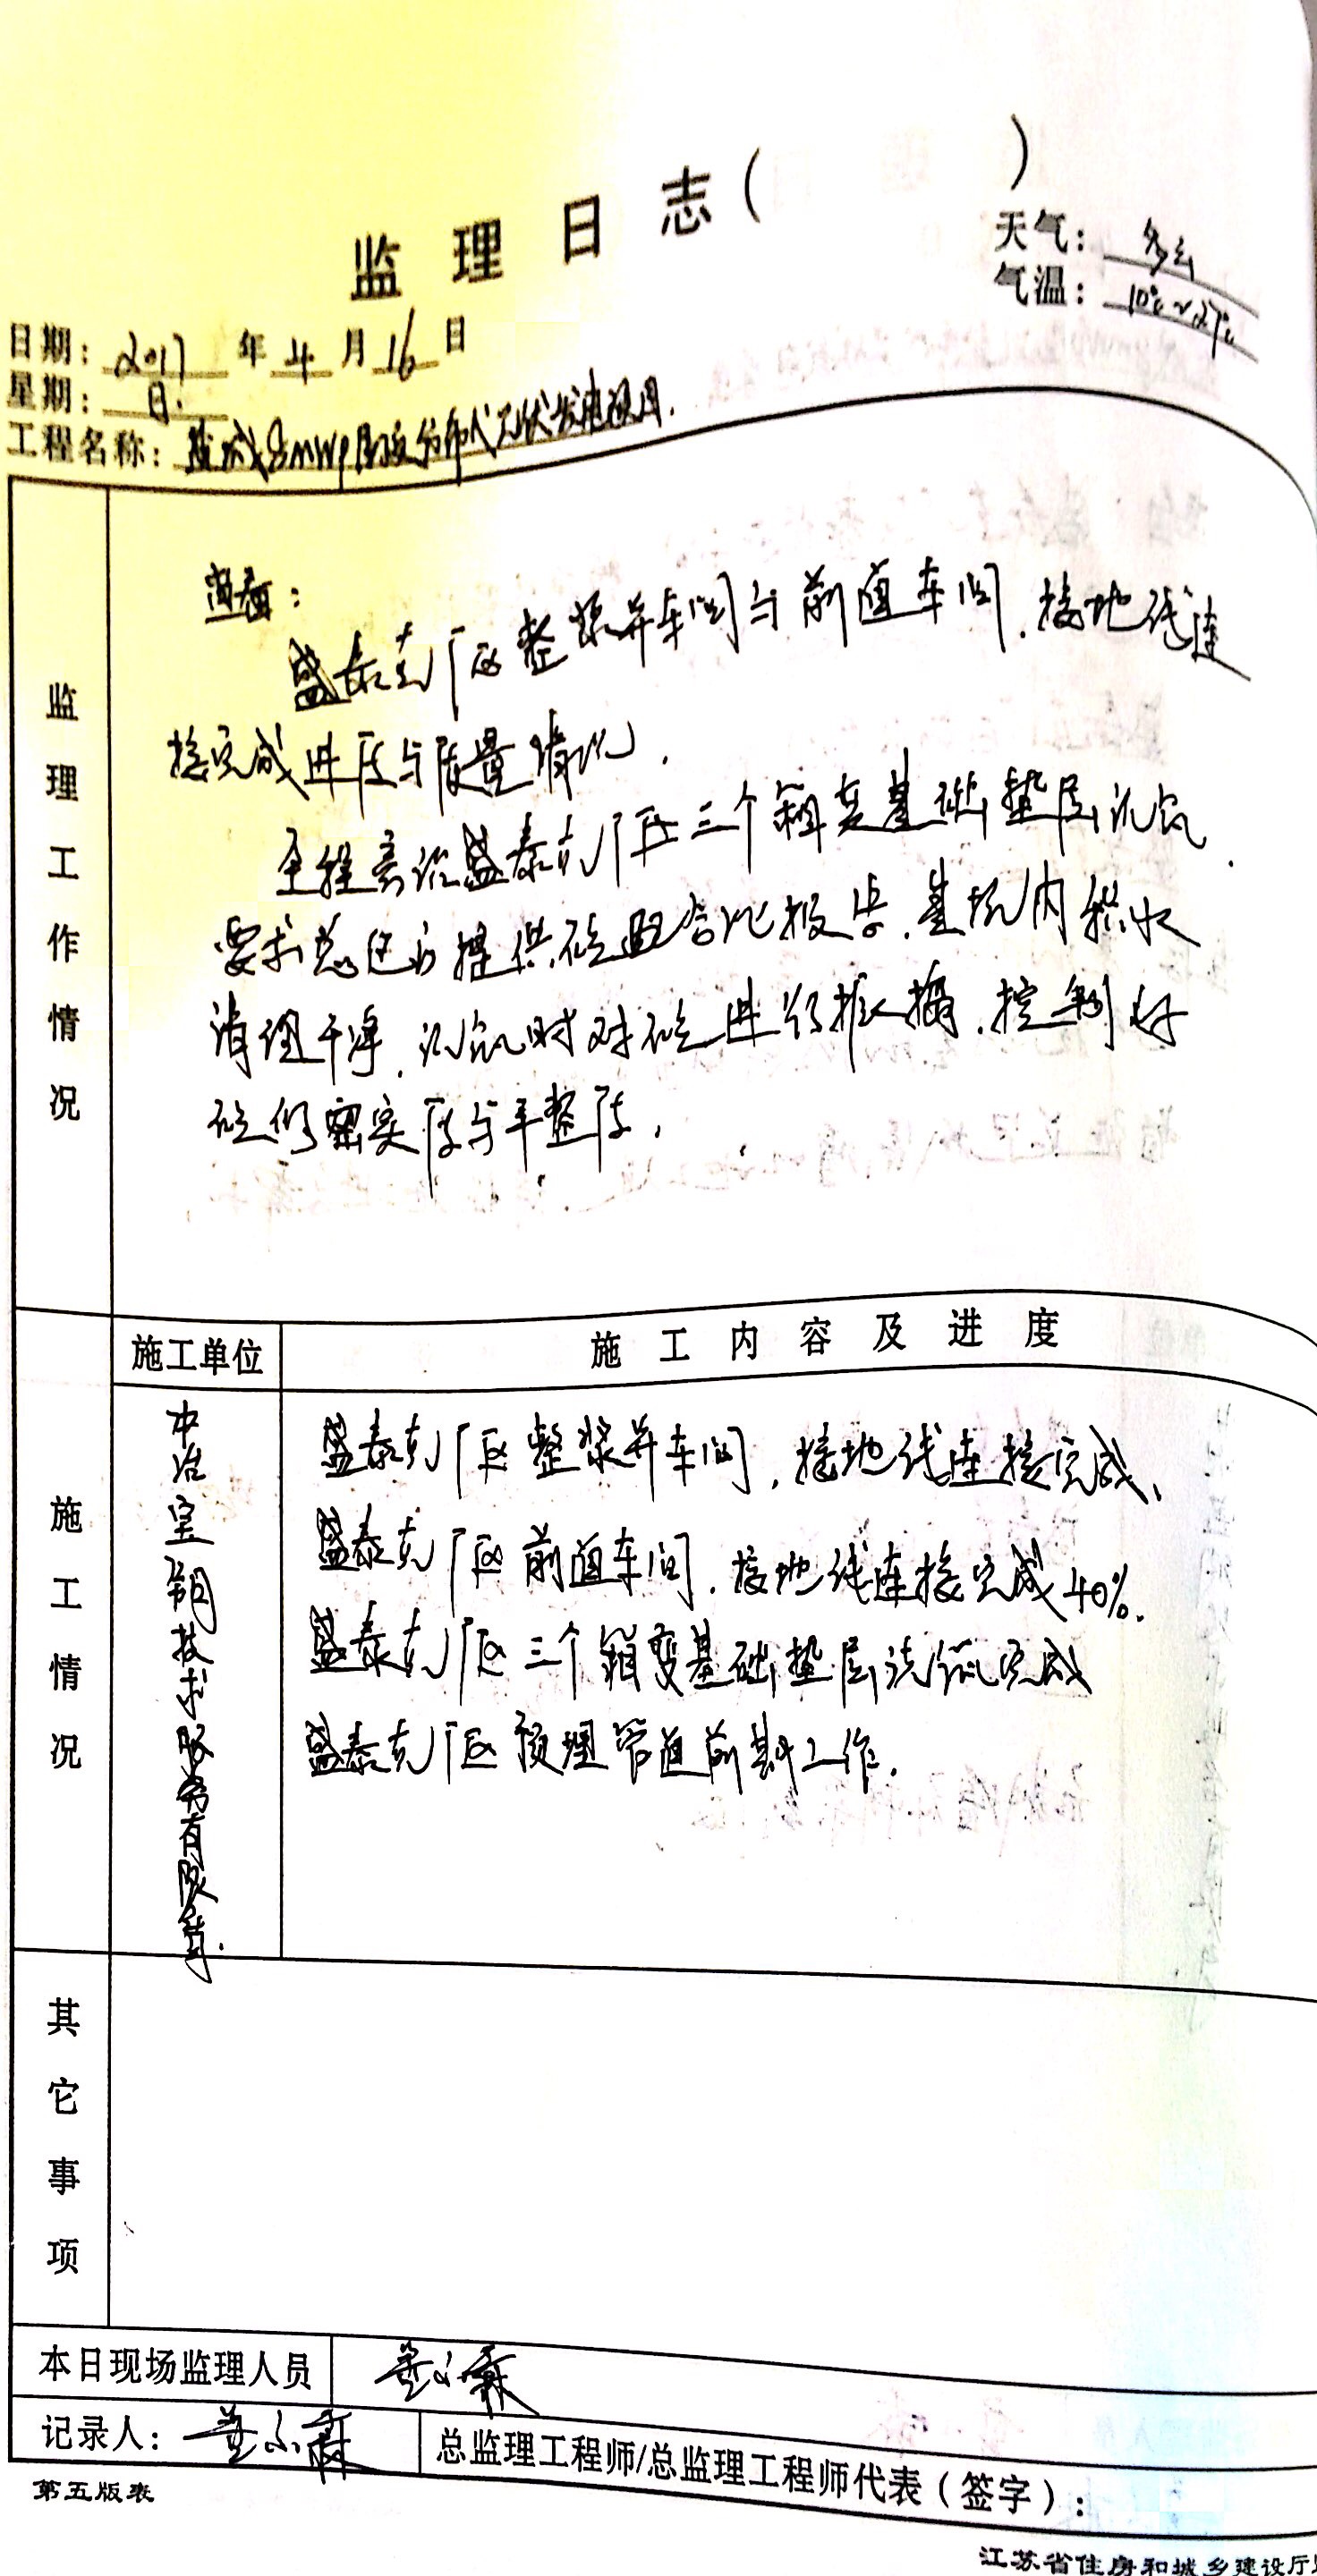 监理日志（　　　）
天气：多云
气温：10℃~27℃
日期：2017年4月16日
星期：日.
工程名称：盐城8MWp屋顶分布式光伏发电项目.
监理工作情况
查看：
盛泰克厂区整浆并车间与前道车间.接地线连
接完成进度与质量情况.
全程旁站盛泰克厂区三个箱变基础垫层浇筑.
要求总包方提供砼配合比报告.基坑内积水
清理干净.浇筑时对砼进行振捣.控制好
砼的密实度与平整度.
施工单位
施工内容及进度
施工情况
中冶宝钢技术服务有限公司.
盛泰克厂区整浆并车间,接地线连接完成、
盛泰克厂区前道车间.接地线连接完成40%.
盛泰克厂区三个箱变基础垫层浇筑完成
盛泰克厂区预埋管道前期工作.
其它事项
本日现场监理人员
记录人：
总监理工程师/总监理工程师代表（签字）：
第五版表
江苏省住房和城乡建设厅